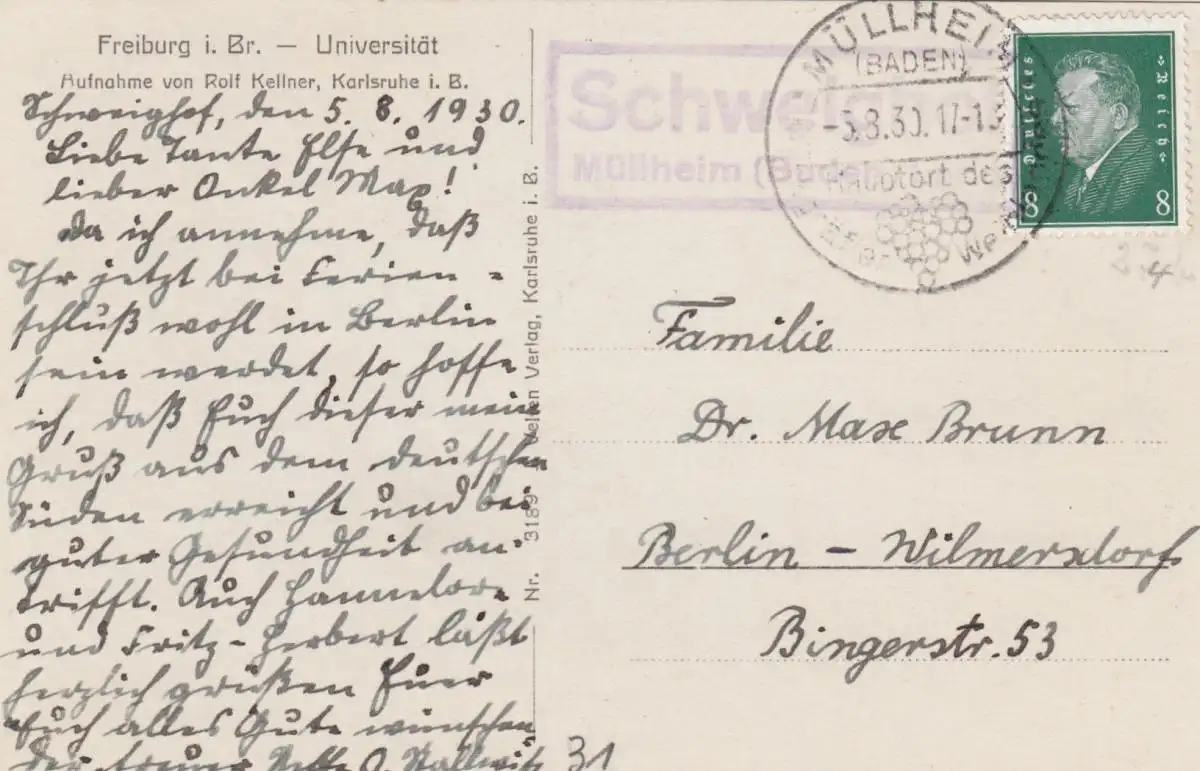 Freiburg i. Br. — Universität
Aufnahme von Rolf Kellner, Karlsruhe i. B.
Schweighof, den 5. 8. 1930.
Liebe Tante Else und
lieber Onkel Max!
Da ich annehme, daß
Ihr jetzt bei Ferien-
schluß wohl in Berlin
sein werdet, so hoffe
ich, daß Euch dieser mein
Gruß aus dem deutschen
Süden erreicht und bei
guter Gesundheit an-
trifft. Auch Hannelore
und Fritz-Herbert läßt
herzlich grüßen Euer
Euch alles Gute wünschen
der treuer Neffe
31
Nr. 3189 Verlag, Karlsruhe i. B.
Müllheim (Baden
MÜLLHEIM
(BADEN)
-5.8.30. 17-18
Hauptort des
Deutsches Reich
8 8
Familie
Dr. Max Brunn
Berlin – Wilmersdorf
Bingerstr. 53